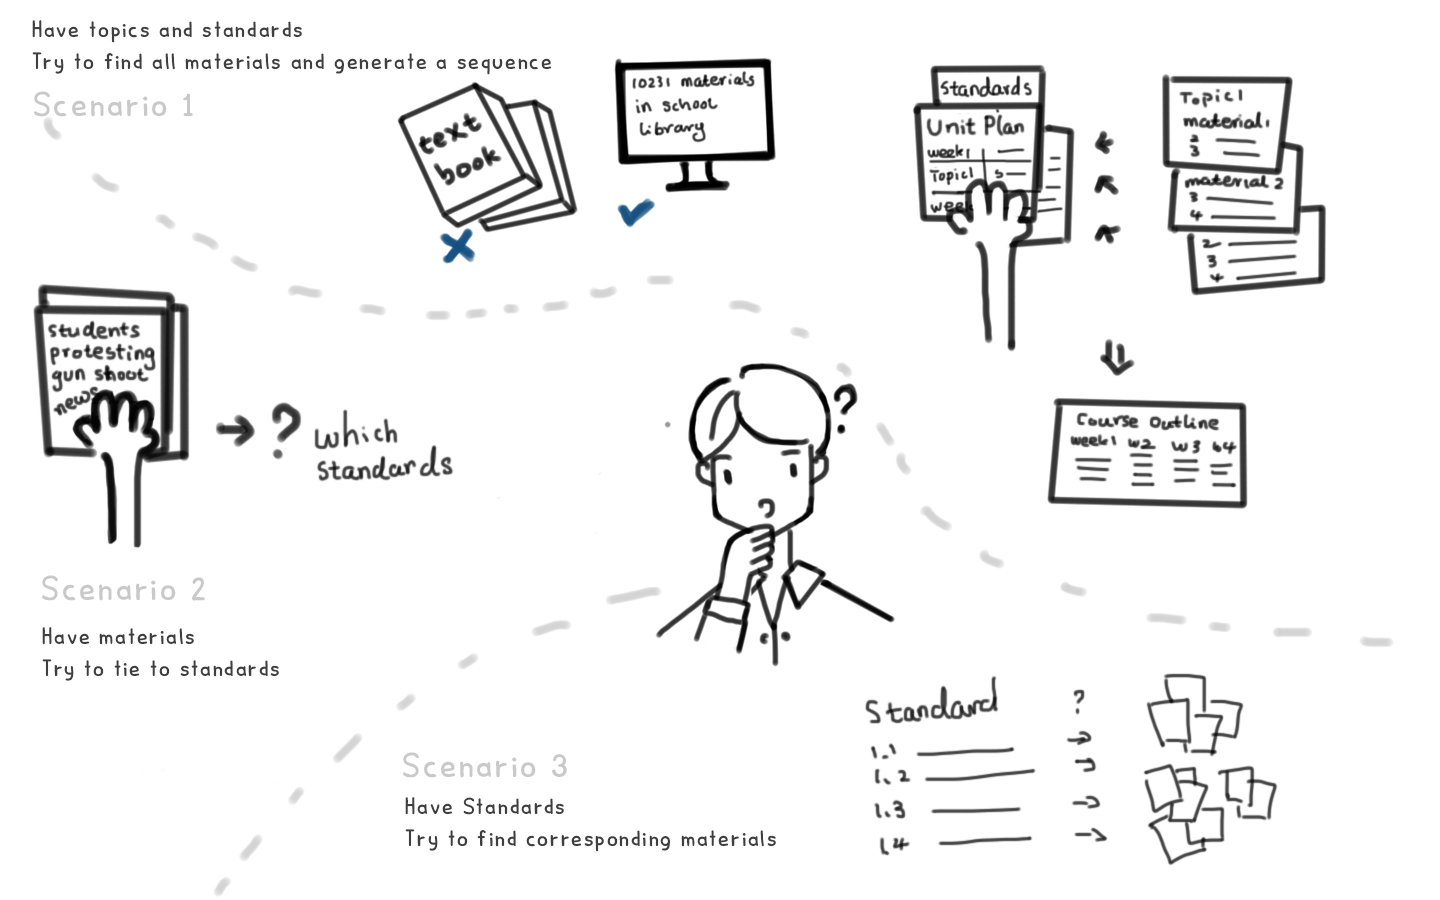 Have topics and standards
Try to find all materials and generate a sequence
Scenario 1
text
book
10231 materials
in school
library
Standards
Unit Plan
week1
Topic1 5
week
Topic1
material1
2
3
material 2
3
4
2
3
4
Course Outline
week1 w2 w3 w4
students
protesting
gun shoot
news
? which
standards
?
?
Scenario 2
Have materials
Try to tie to standards
Scenario 3
Have Standards
Try to find corresponding materials
Standard ?
1.1
1.2
1.3
1.4